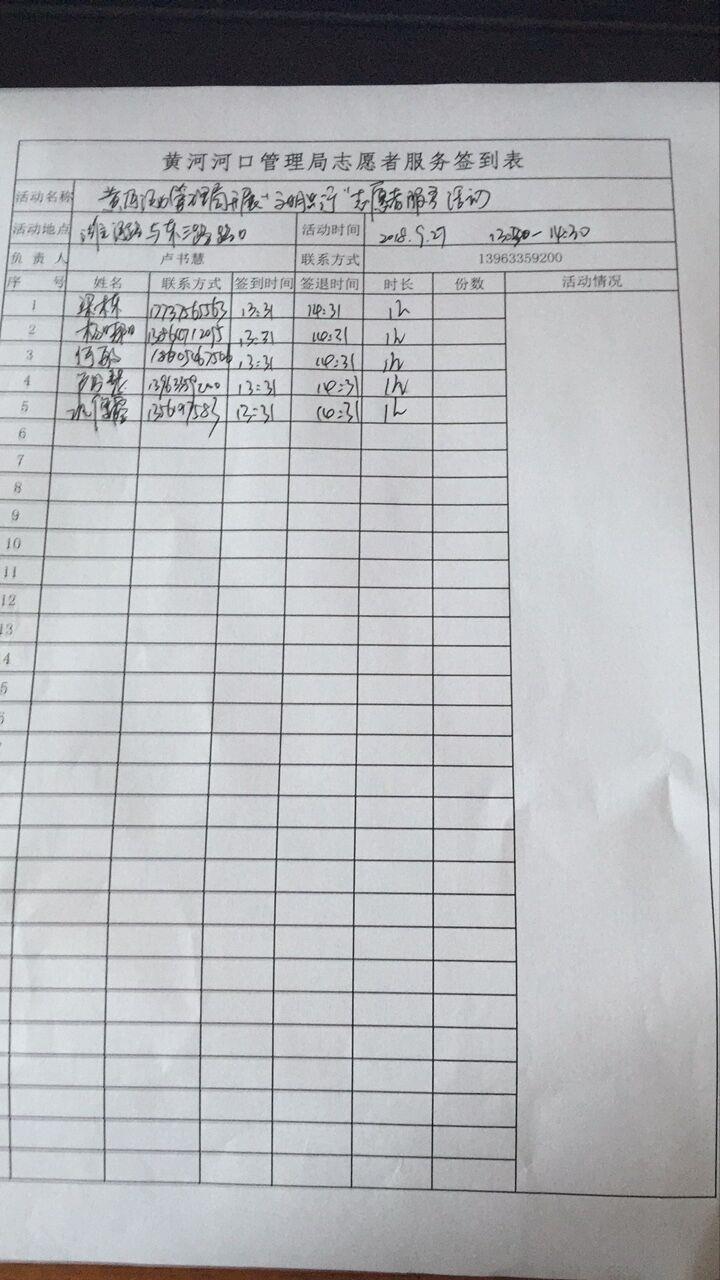 黄河河口管理局志愿者服务签到表
活动名称 黄河河口管理局开展"文明出行"志愿者服务活动
活动地点 路与东三路路口 活动时间 2018.9.27 13:30-14:30
负责人 卢书慧 联系方式 13963359200
序号 姓名 联系方式 签到时间 签退时间 时长 份数 活动情况
1 梁栋 13:31 14:31 1h
2 13:31 14:31 1h
3 何敏 13:31 14:31 1h
4 13963359200 13:31 14:31 1h
5 13:31 14:31 1h
6
7
8
9
10
11
12
13
4
5